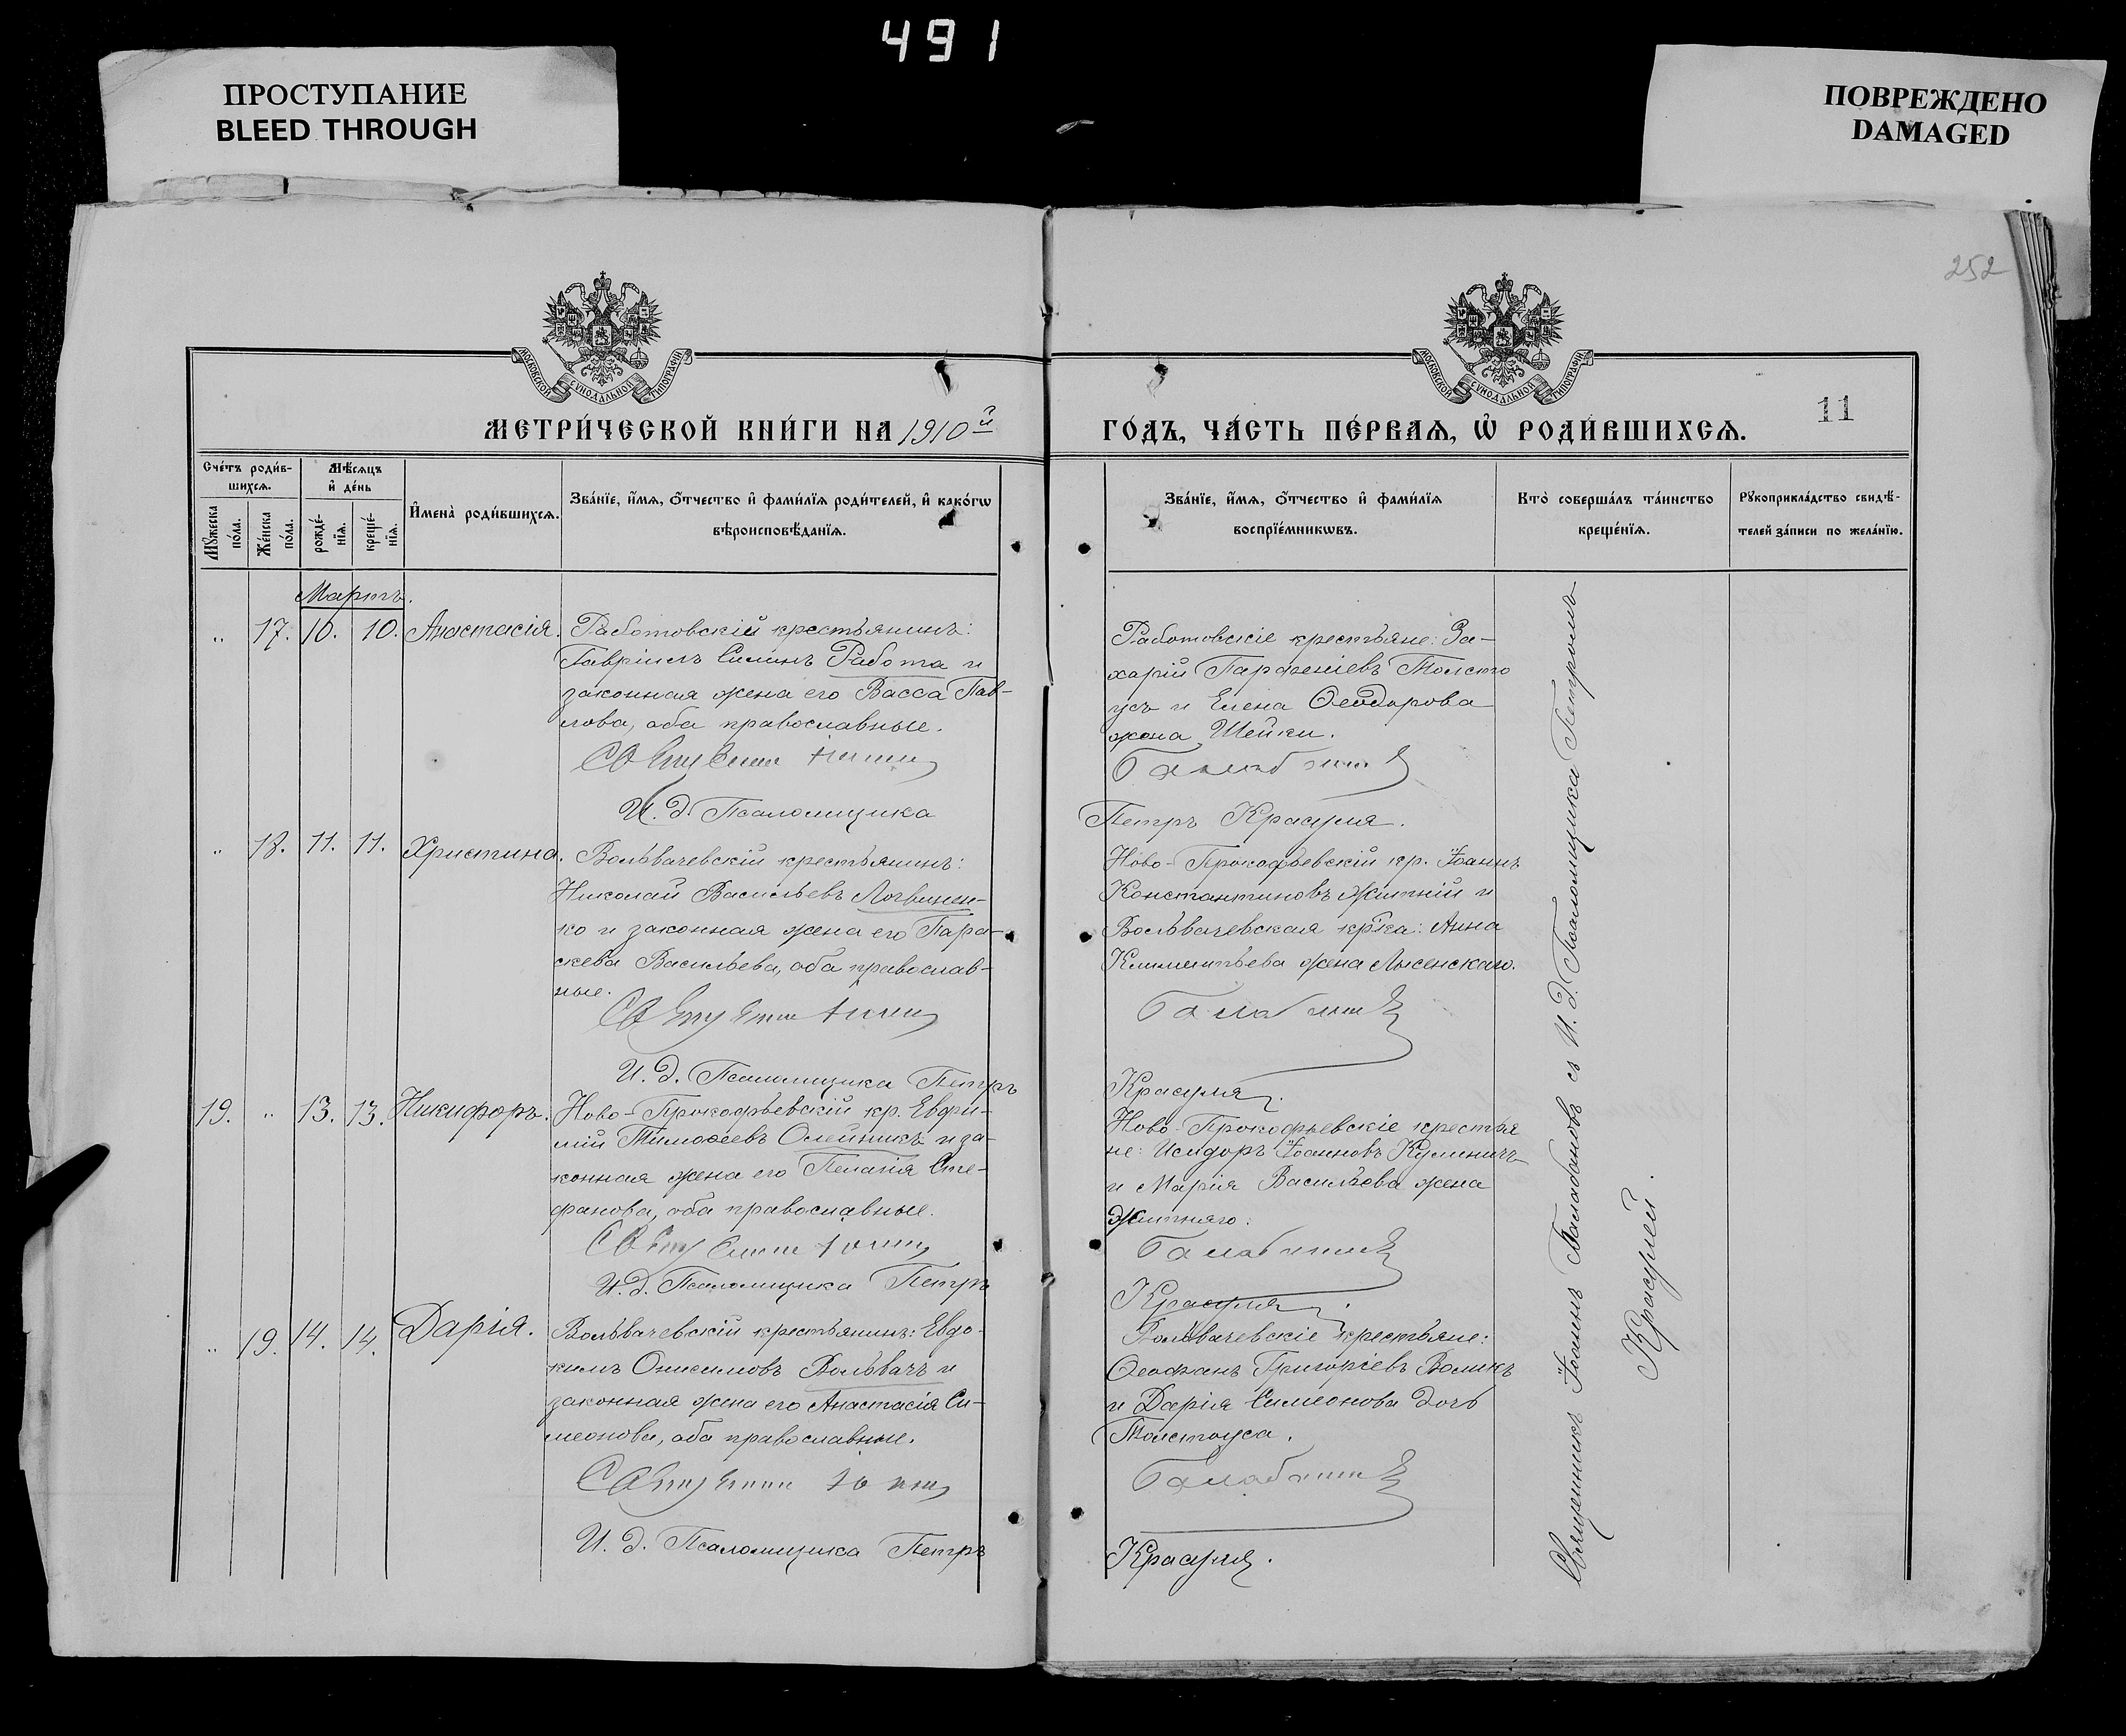 491
ПРОСТУПАНИЕ
BLEED THROUGH
ПОВРЕЖДЕНО
DAMAGED
252
МОСКОВСКОЙ СѴНОДАЛЬНОЙ ТИПОГРАФІИ
МОСКОВСКОЙ СѴНОДАЛЬНОЙ ТИПОГРАФІИ
МЕТРИ́ЧЕСКОЙ КНИ́ГИ НА 1910й
ГО́ДЪ, ЧА́СТЬ ПЕ́РВАѦ, Ѽ РОДИ́ВШИХСѦ.
11
Сче́тъ роди́в-
шихсѧ.
Мѣ́сѧцъ
и҆ де́нь
Мꙋ́жеска
по́ла.
Же́нска
по́ла.
рожде́-
нїѧ.
креще́-
нїѧ.
И҆мена̀ роди́вшихсѧ.
Зва́нїе, и҆́мѧ, ѻ҆́тчество и҆ фами́лїѧ роди́телей, и҆ како́гѡ
вѣроисповѣ́данїѧ.
Зва́нїе, и҆́мѧ, ѻ҆́тчество и҆ фами́лїѧ
воспрїе́мникѡвъ.
Кто̀ соверша́лъ та́инство
креще́нїѧ.
Рꙋкоприкла́дство свидѣ́-
телей за́писи по жела́нїю.
Мартъ.
„ 17. 10. 10. Анастасія.
Работовскій крестьянинъ:
Гавріилъ Силинъ Работа и
законная жена его Васса Пав-
лова, оба православные.
И. д. Псаломщика
Работовскіе крестьяне: За-
харій Парфеніевъ Толсто
усъ и Елена Ѳеодорова
жена Шейки.
Петръ Красуля.
„ 18. 11. 11. Христина.
Вольвачевскій крестьянинъ:
Николай Васильевъ Логвинен-
ко и законная жена его Пара-
скева Васильева, оба православ-
ные.
И. д. Псаломщика Петръ
Ново-Прокофьевскій кр. Іоаннъ
Константиновъ Житній и
Вольвачевская кр-ка: Анна
Климентьева жена Лысенскаго.
Красуля.
19. „ 13. 13. Никифоръ.
Ново-Прокофьевскій кр. Евфи-
мій Тимоѳеевъ Олейникъ и за-
конная жена его Пелагія Сте-
фанова, оба православные.
И. д. Псаломщика Петръ
Ново-Прокофьевскіе крестья
не: Исидоръ Іоанновъ Кулиничъ
и Марія Васильева жена
Житняго.
Красуля.
„ 19. 14. 14. Дарія.
Вольвачевскій крестьянинъ: Евдо-
кимъ Онисимовъ Вольвачъ и
законная жена его Анастасія Си-
меонова, оба православные.
И. д. Псаломщика Петръ
Вольвачевскіе крестьяне:
Григоріевъ Воликъ
и Дарія Симеонова дочь
Толстоуса.
Красуля.
Священникъ Іоаннъ Балабановъ съ И. д. Псаломщика Петромъ
Красулей.